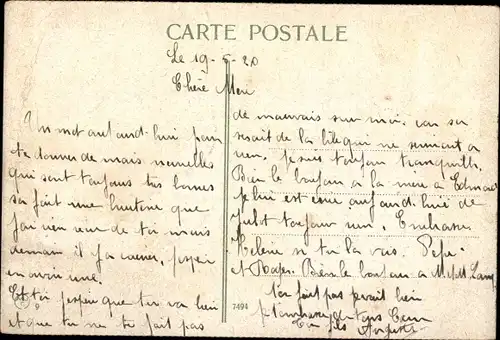 CARTE POSTALE
Le 19-5-20
Chère Mère
Un mot aujourd-hui pour
te donner de mais nouvelles
qui sont toujours très bonnes
sa fait une huitene que
j'ai rien eue de toi mais
demain il y a courier, j'espère
en avoir une.
Et toi j'espère que tu va bien
et que tu ne te fait pas
de mauvais sur moi. car sa
serait de la bile qui ne servirait a
rien. je suis toujour tranquille.
Bien le bonjour a la mère a Edmond
je lui est écrie aujourd. hui de
toujour rien. Embrasse
Helene si tu la vois. Pépé
et Bien le bonjour a
fait pas bien
ton Cœur
Ton fils Auguste
7494